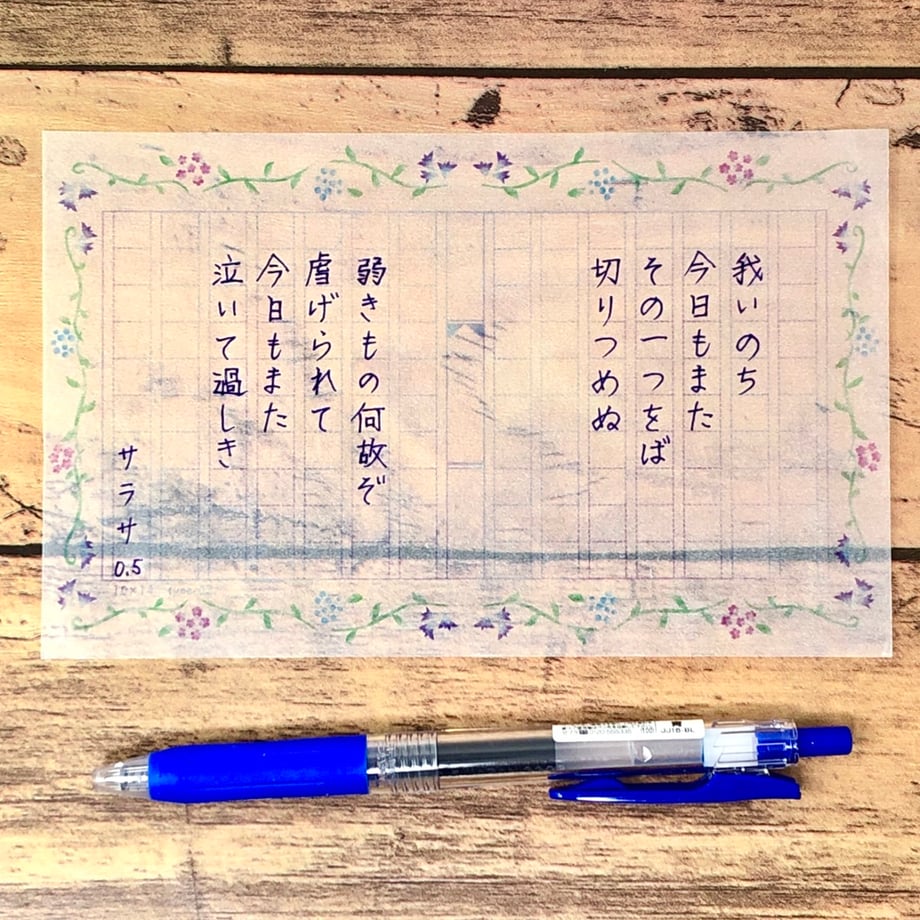 我いのち
今日もまた
その一つをば
切りつめぬ
弱きもの何故ぞ
虐げられて
今日もまた
泣いて過しき
サラサ
0.5
JJ15-BL